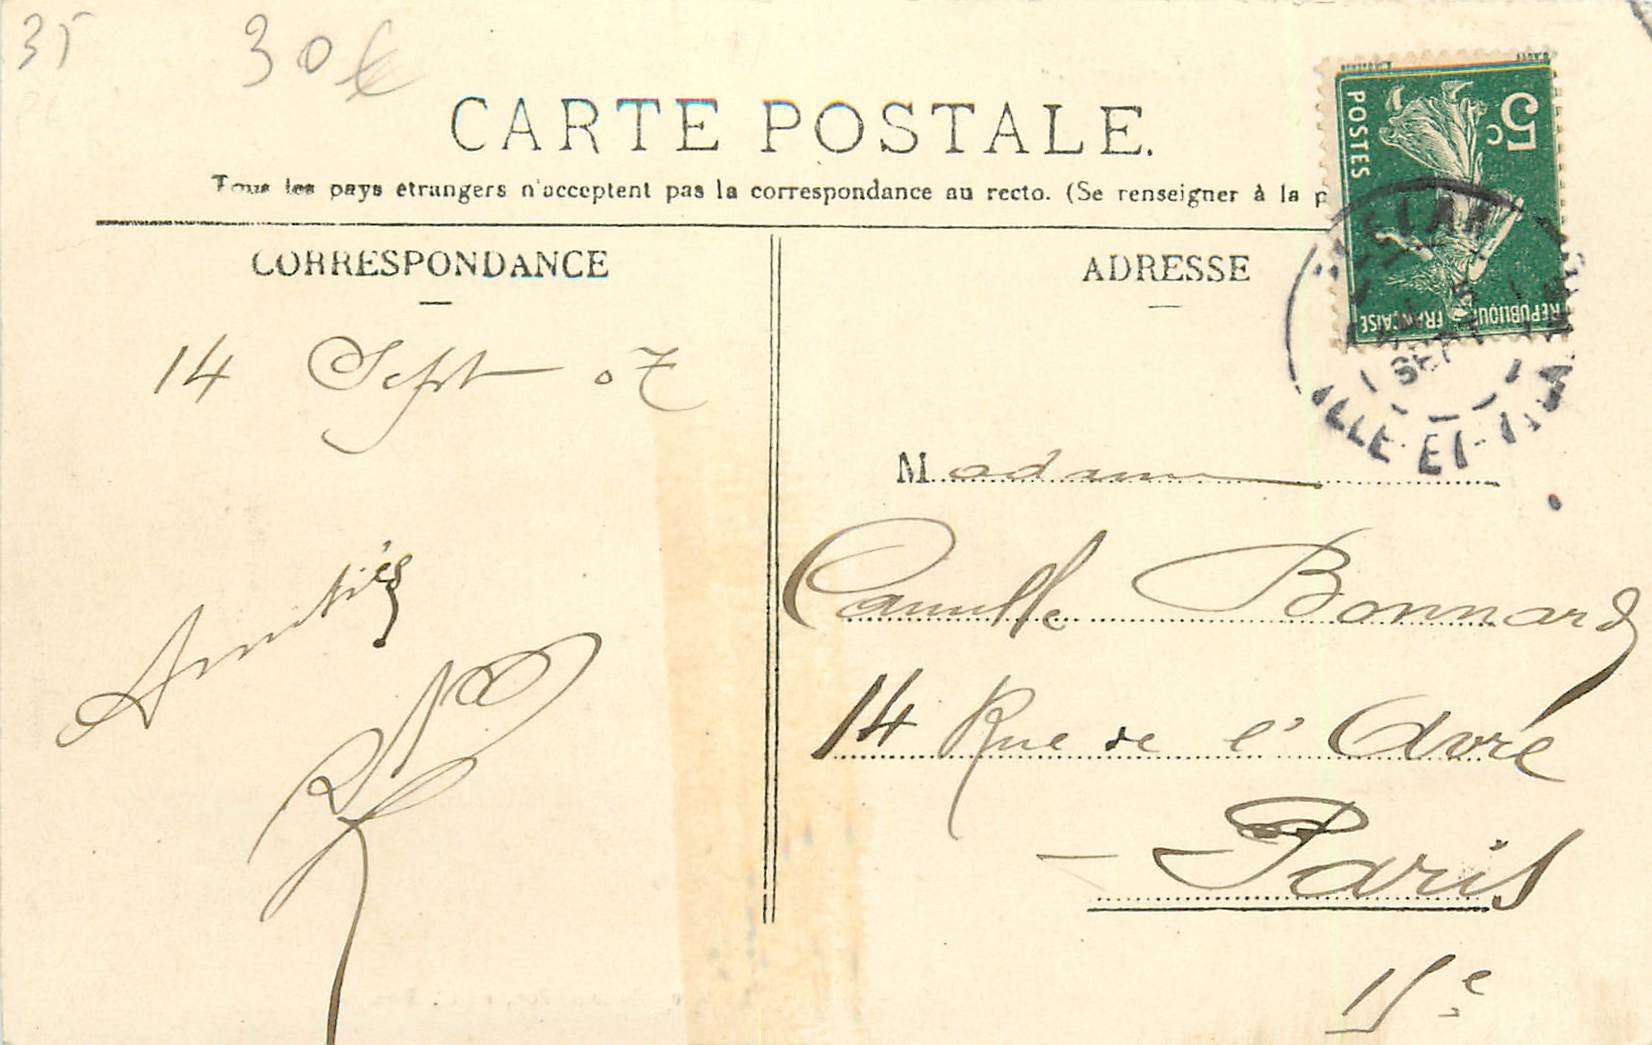 35
30€
CARTE POSTALE.
Tous les pays étrangers n'acceptent pas la correspondance au recto. (Se renseigner à la p
CORRESPONDANCE
ADRESSE
5c
POSTES
REPUBLIQUE FRANÇAISE
SEPT
ILLE-ET-
14 Sept 07
Amitiés
Madame
Camille Bonnard
14 Rue de l'Avre
Paris
15e